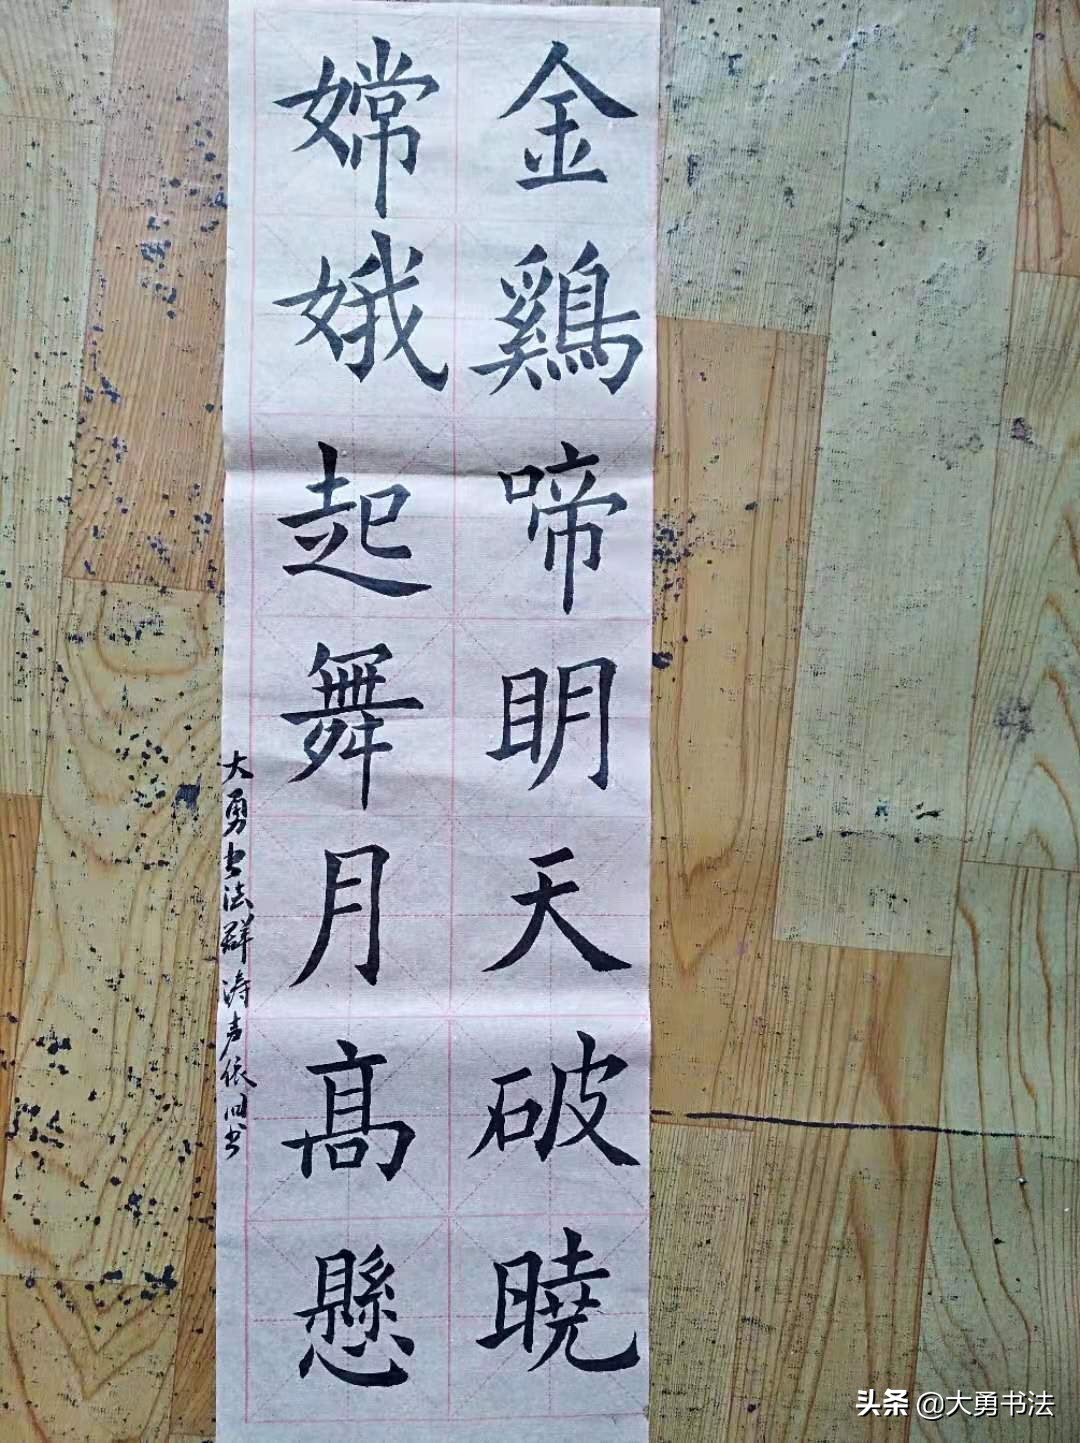 金鷄啼明天破曉
嫦娥起舞月高懸
大勇书法群涛声依旧书
头条 @大勇书法